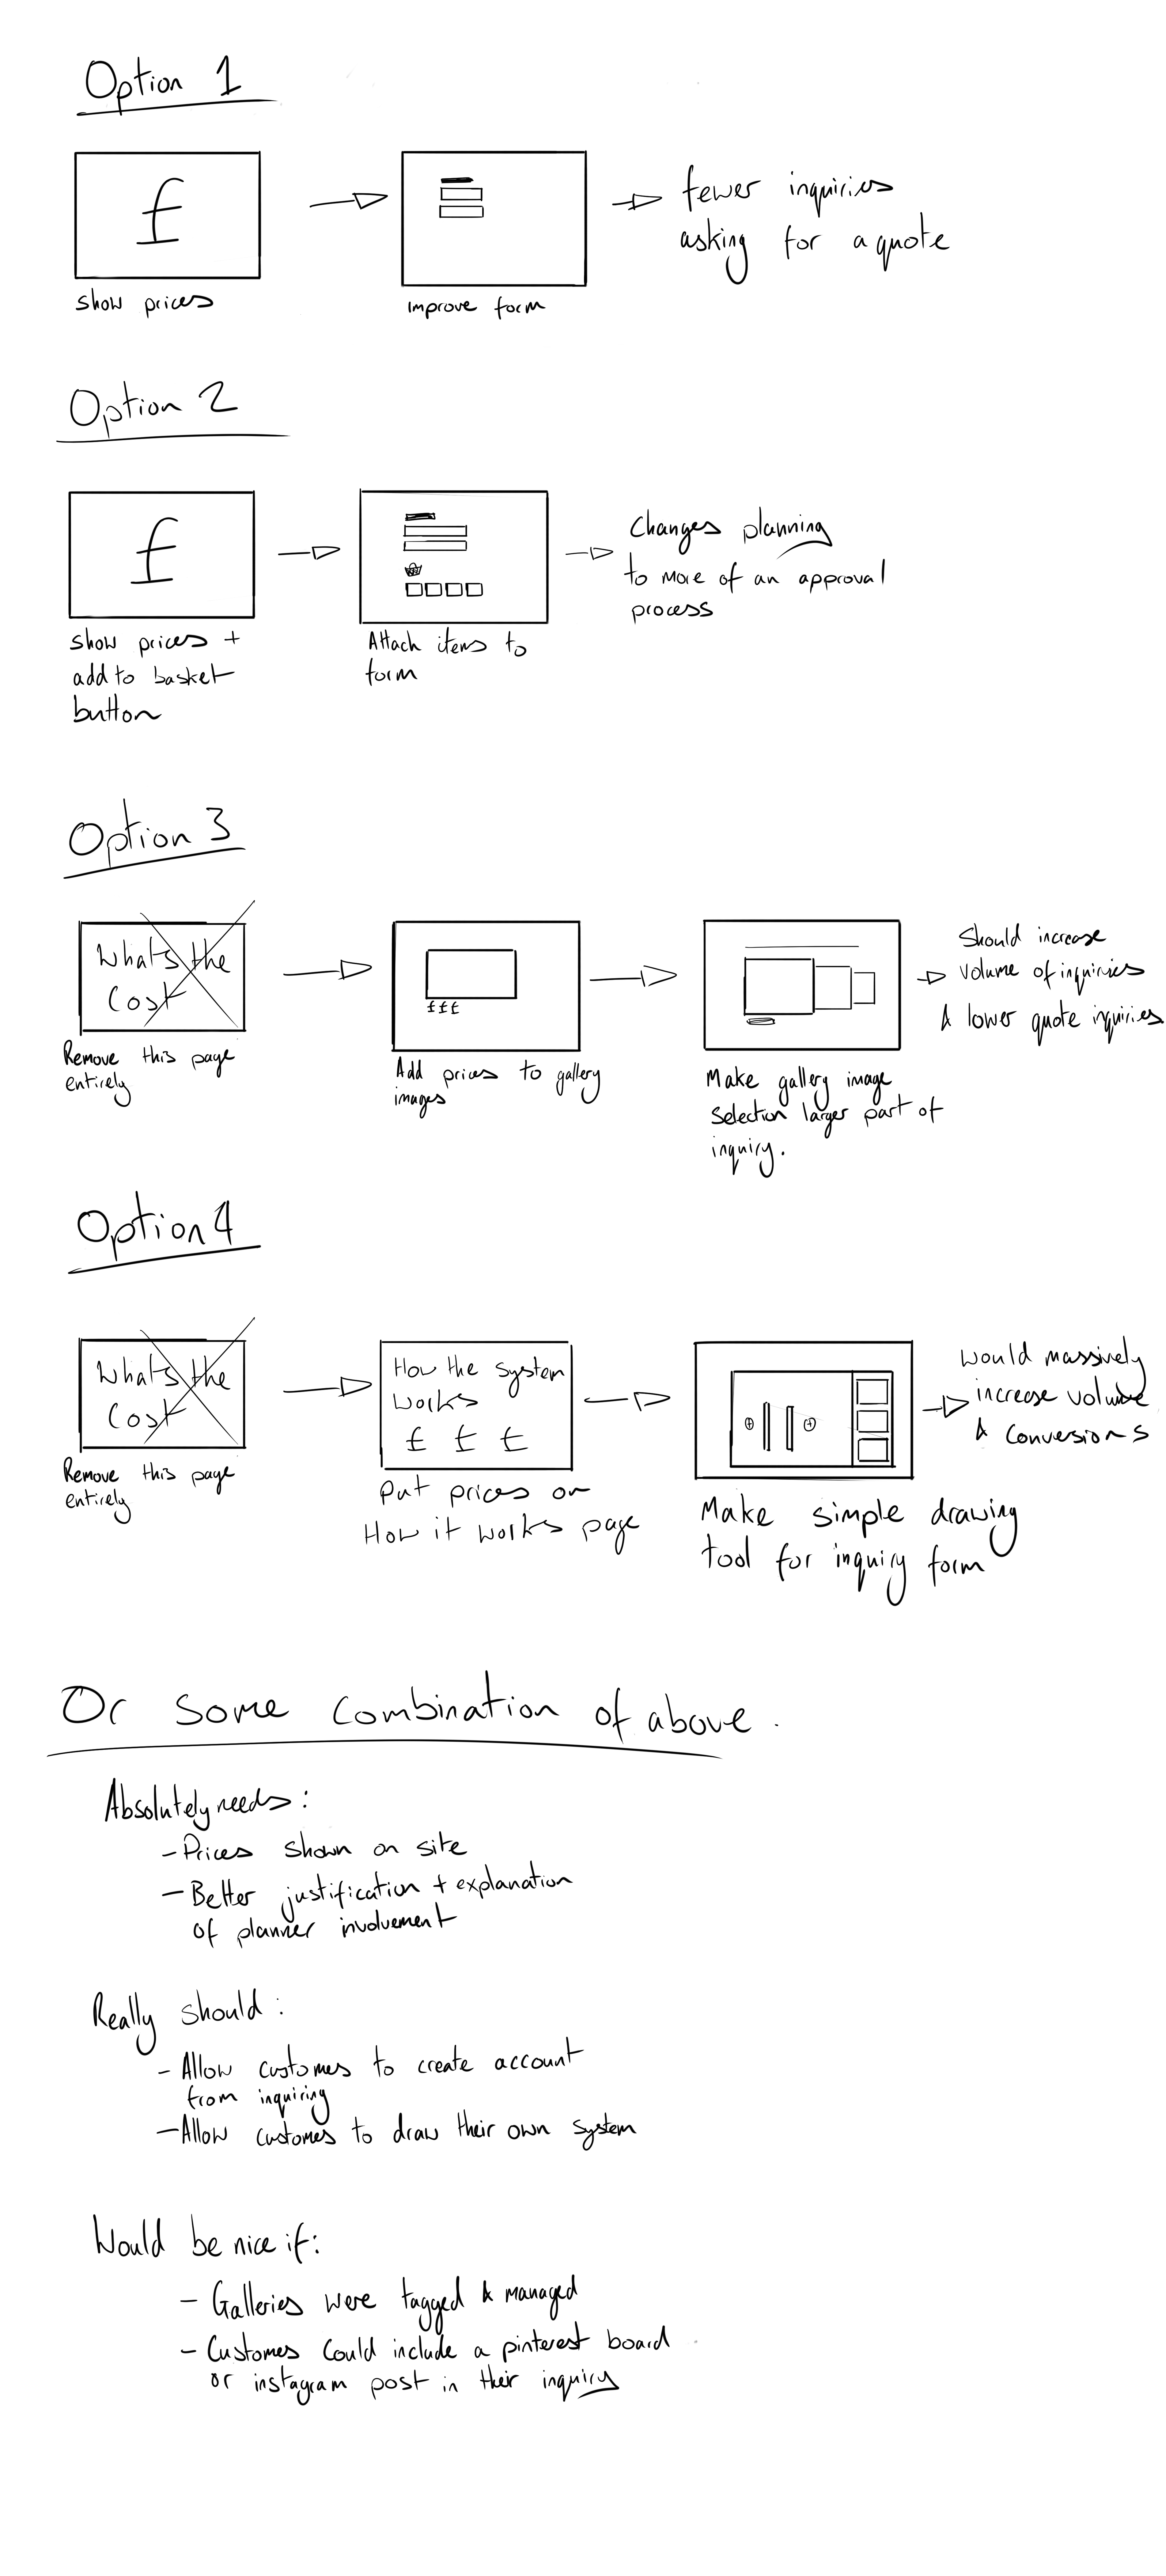 Option 1
£
show prices
Improve form
fewer inquiries
asking for a quote
Option 2
£
show prices +
add to basket
button
Attach items to
form
Changes planning
to more of an approval
process
Option 3
Whats the
Cost
Remove this page
entirely
£££
Add prices to gallery
images
Make gallery image
Selection larger part of
inquiry.
Should increase
volume of inquiries
& lower quote inquiries
Option 4
Whats the
Cost
Remove this page
entirely
How the system
works
£ £ £
Put prices on
How it works page
Make simple drawing
tool for inquiry form
Would massively
increase volume
& conversions
Or some combination of above.
Absolutely needs:
- Prices shown on site
- Better justification + explanation
of planner involvement
Really should:
- Allow customes to create account
from inquiring
- Allow customes to draw their own system
Would be nice if:
- Galleries were tagged & managed
- Customes Could include a pinterest board
or instagram post in their inquiry